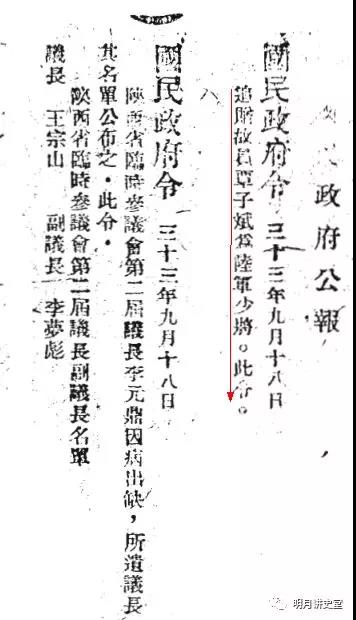 政府公報
國民政府令 三十三年九月十八日
追贈故員覃子斌為陸軍少將。此令。
國民政府令 三十三年九月十八日
陝西省臨時參議會第二屆議長李元鼎因病出缺，所遺議長
其名單公布之。此令。
陝西省臨時參議會第二屆議長副議長名單
議長 王宗山 副議長 李夢彪
明月讲史堂